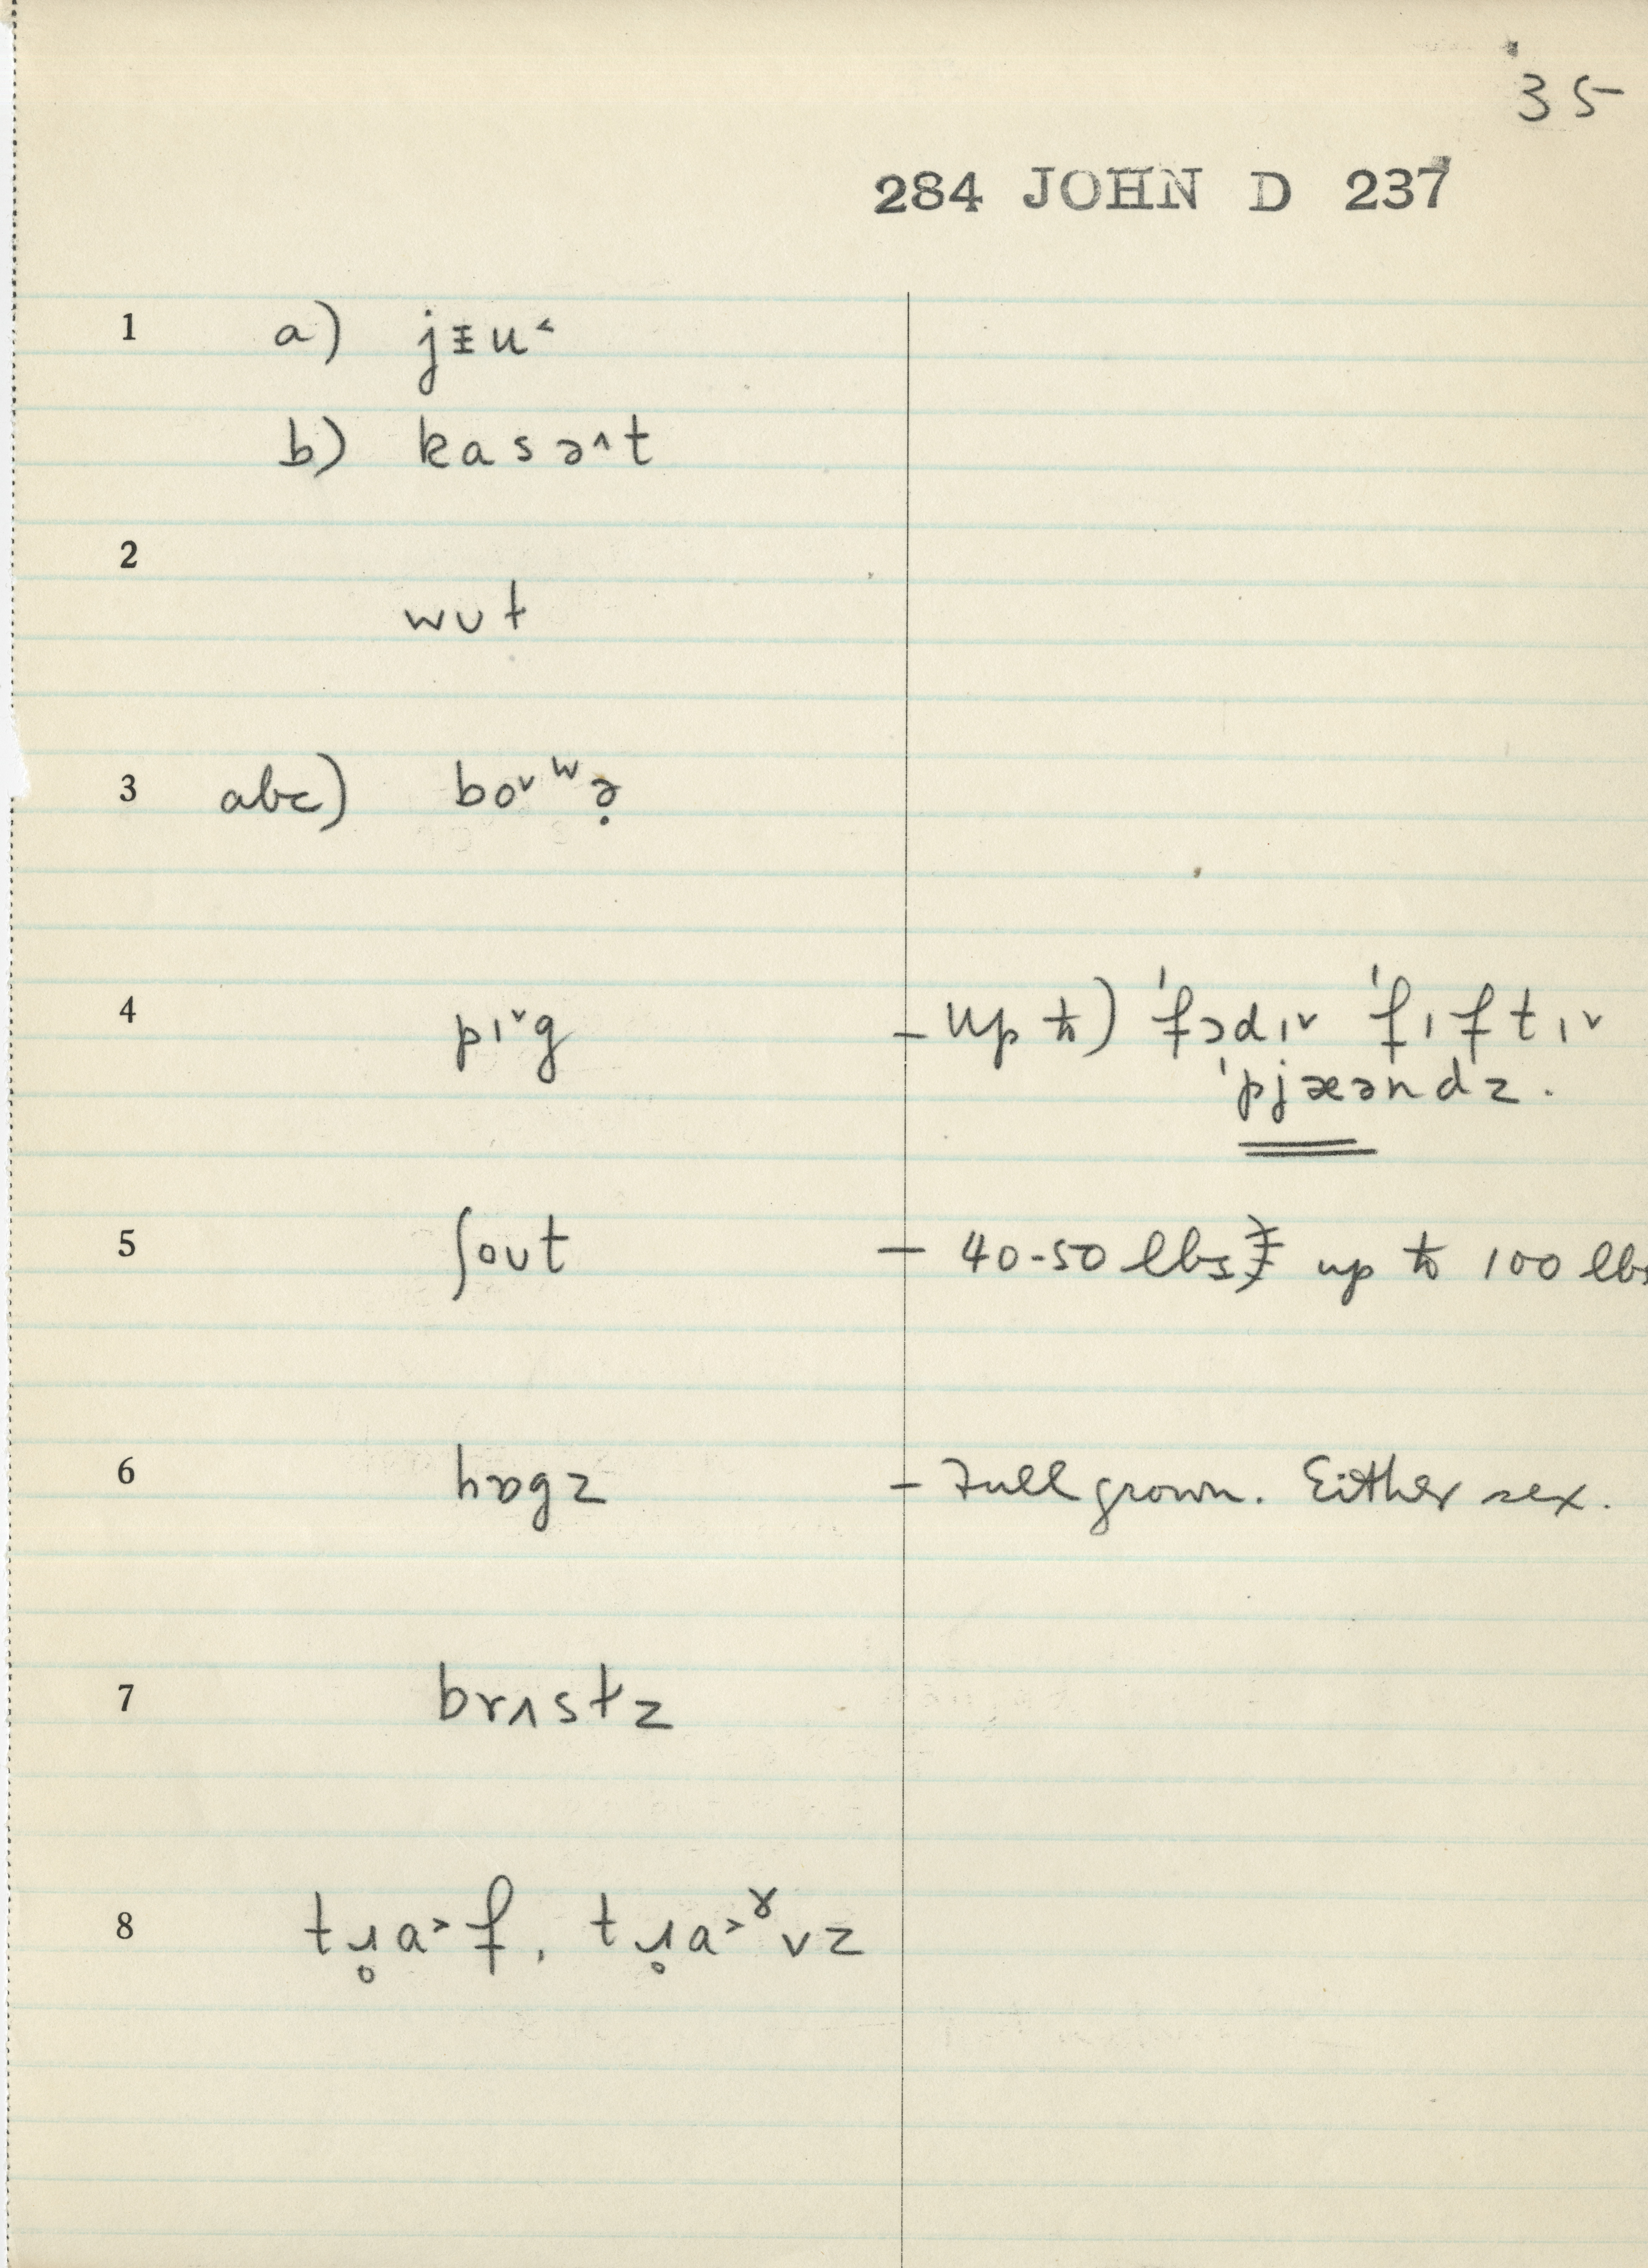 35
284 JOHN D 237
1 a) jᵻu˂
b) kasə˄t
2
wʊt
3 abc) bo˅ʷə̣
4 pɪ˅g – up to) ˈfɔdɪ˅ ˈfɪftɪ˅
ˈpjæəndz.
5 ʃoʊt – 40-50 lbs up to 100 lbs
6 hɒgz – Full grown. Either sex.
7 brɪstz
8 tɹ̥a˃f, tɹ̥a˃ᵞvz